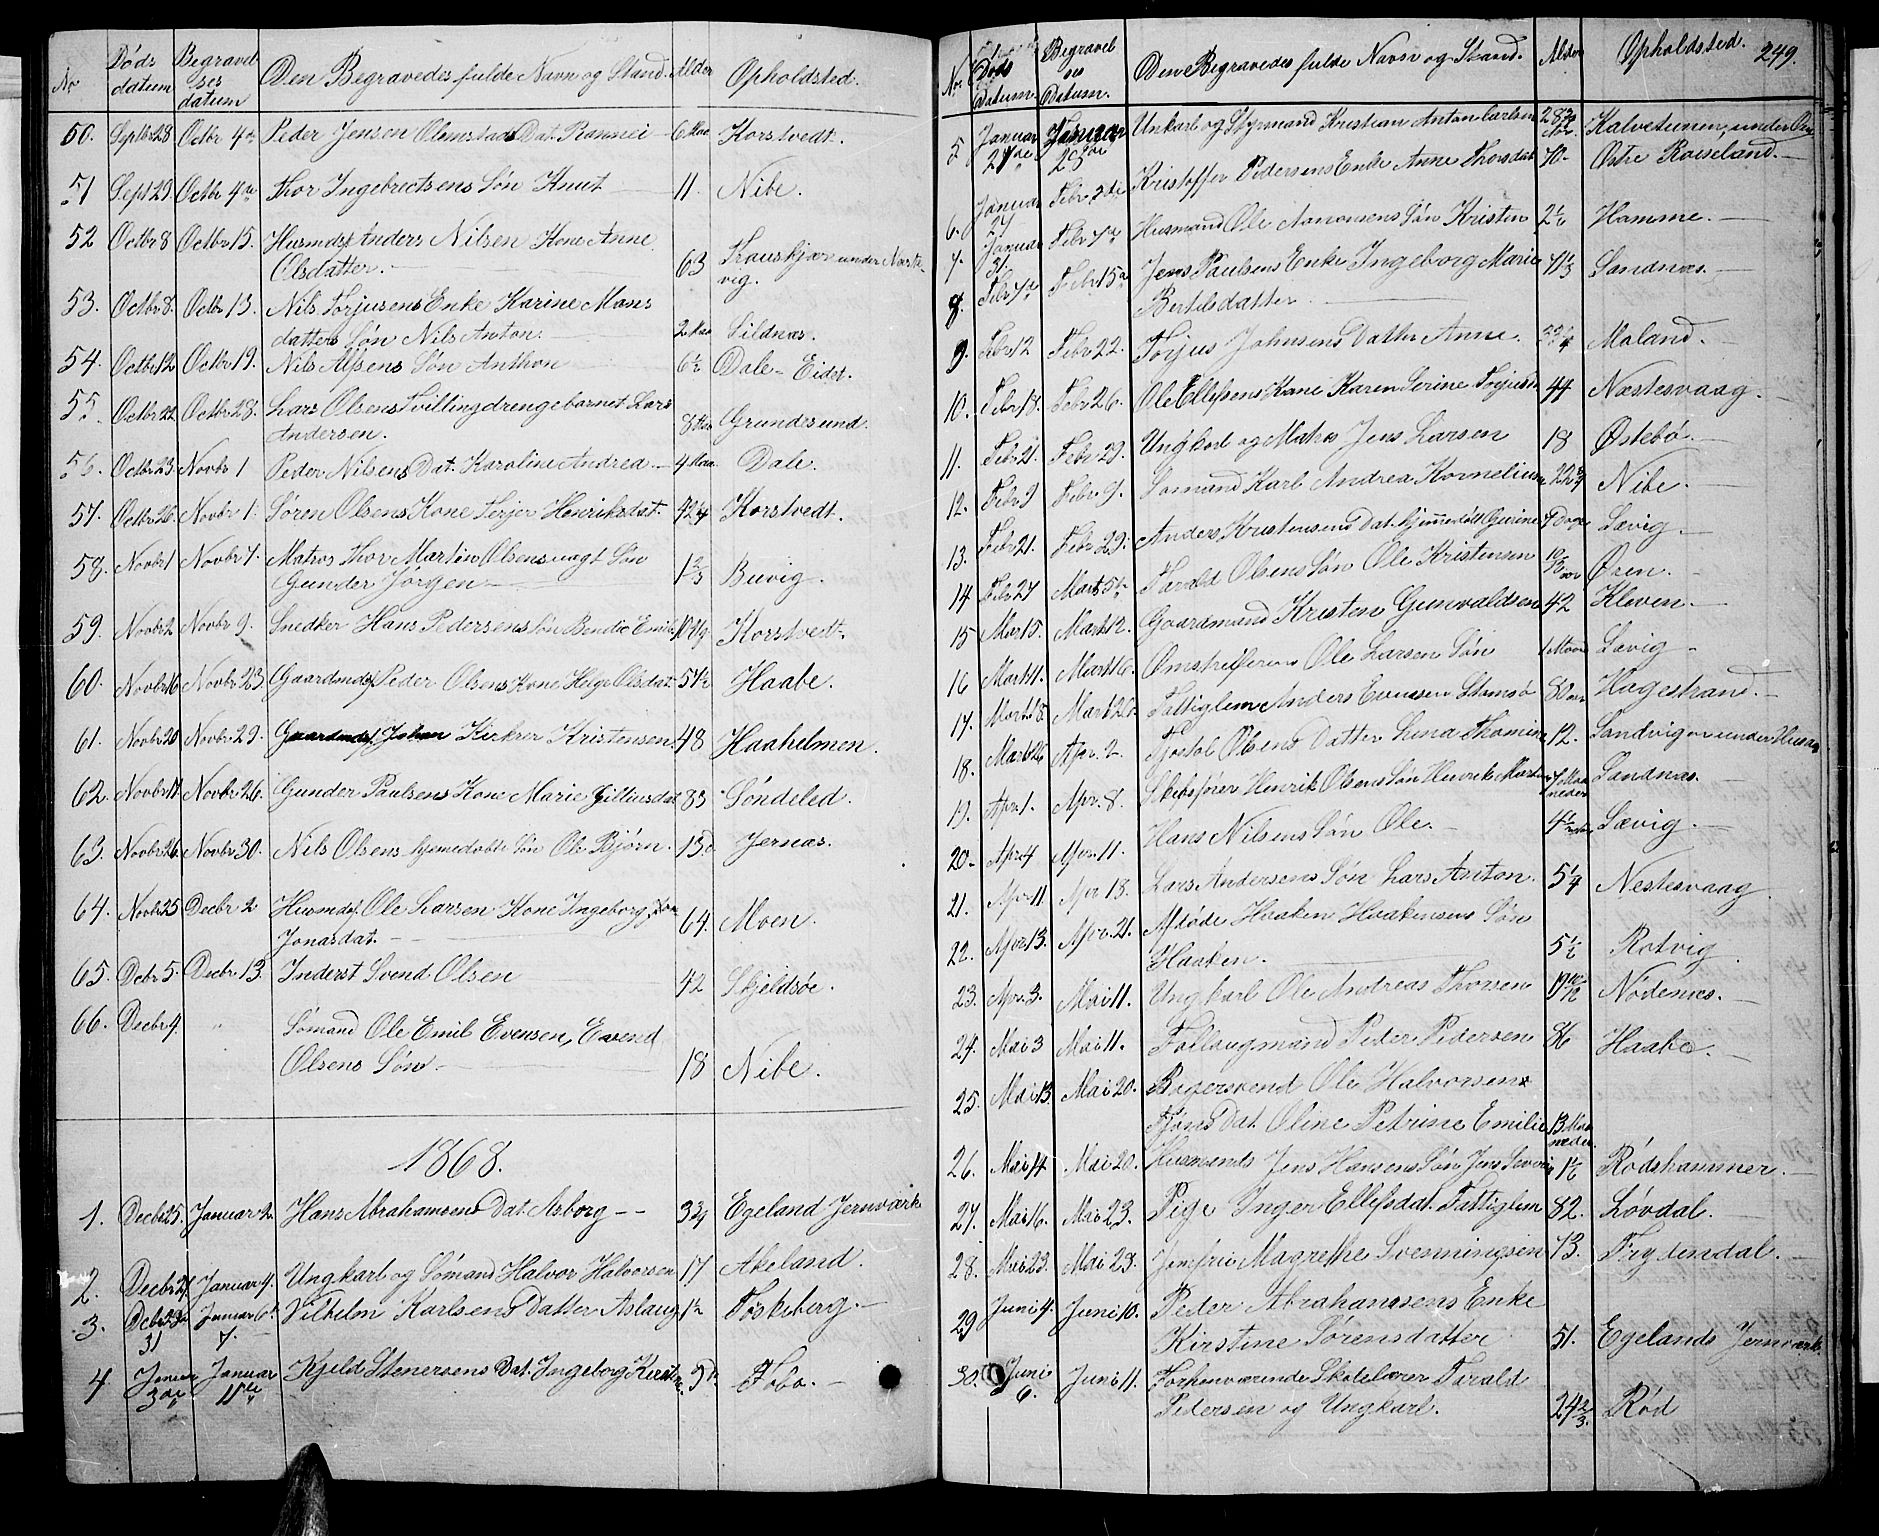 No Døds datum Begravelses datum Den Begravedes fulde Navn og Stand. Alder Opholdsted.
50. Septbr 28 Octbr 4de Peder Jensen Olmstads Dat. Rannei 6 Maa Korstvedt.
51 Sept 29. Octbr 4de Thor Ingebrectsens Søn Knut 11. Nibe.
52 Octbr 8 Octbr 15. Husmds. Anders Nilsen Kone Anne
Olsdatter. 63 under Narte-
vig.
53. Octbr 8. Octbr 13. Nils Torjusens Enke Karine Mons
datters Søn Nils Anton. 2 Maa Sildnæs.
54. Octbr 12 Octbr 19. Nils Alfsens Søn Anthon 6½ Dale - Eidet.
55. Octbr 22 Octbr 28. Lars Olsens Tvillingdrengebarnet Lars
Andersen. 8 Maa Grundesund.
56. Octbr 23. Novbr 1 Peder Nilsens Dat. Karoline Andrea 4 Maa Dale.
57. Octbr 26 Novbr 1. Søren Olsens Kone Terjer Henriksdat. Korstvedt.
58. Novbr 1 Novbr 7. Matros Thor Martin Olsens uægt Søn
Gunder Jørgen 1⅔ Buvig.
59. Novbr 2 Novbr 9. Snedker Hans Pedersens Søn Bendic Emil 10 Ug Korstvedt.
60. Novbr 16 Novbr 23. Gaardmds. Peder Olsens Kone Helge Olsdat. 57½ Haabe.
61. Novbr 20 Novbr 29. Gaardmds. Johan Kirkrer Kristensen 48 Haahelmen.
62. Novbr 17 Novbr 26. Gunder Paulsens Kone Marie Gilliusdat 83 Søndeled.
63. Novbr 26. Novbr 30. Nils Olsens hjemedøbte Søn Ole Bjørn. 13 D Jernæs.
64. Novbr 25 Decbr 2 Husmds. Ole Larsen Kone Ingeborg
Jonasdat. 64. Moen.
65. Decbr 5. Decbr 13. Inderst Svend Olsen 42 Skjeldsøe.
66. Decbr 9. " Sømand Ole Emil Evensen, Evend
Olsens Søn 18 Nibe.
1868.
1. Decbr 25. Januar 2. Hans Abrahamsens Dat. Asborg 3¾ Egeland Jernværk
2. Decbr 27. Januar 4. Ungkarl og Sømand Halvor Halvorsen 17 Akeland.
3. Januar 6te Vilhelm Karlsens Datter Aslaug 1½ Foskeberg.
31 7.
4. Januar 3de Januar 11te Kjeld Stenersens Dat. Ingeborg Kirstine 9 D Fobo.
249.
No. Døds Datum. Begravelses Datum. Den Begravedes fulde Navn og Stand. Alder Opholdsted.
5 Januar 21de Januar 28de Unkarl og Styrmand Kristian Anton Carlsen 28 Kalvetunen, under
6. Januar 27 Febr. 3die Kristoffer Pedersens Enke Anne Thorsdat. 70. Østre Roiseland.
7. Januar 31 Febr 7de Husmand Ole Aanonsens Søn Kristen 2½ Hamme.
8. Febr 7de Febr 15de Jens Paulsens Enke Ingeborg Marie 71⅓ Sandnæs.
Bertelsdatter
9. Febr 12 Febr 22. Torjus Johnsens Datter Anne. Moland.
10. Febr 18. Febr 26. Ole Ellefsens Kone Karen Serine Torjusd 44 Næstesvaag.
11. Febr 21. Febr 29. Ungkarl og Matros Jens Larsen 18 Østebø.
12. Febr 9 Febr 9. Sømand Karl Andrea Kornelius 22¾ Nibe.
13. Febr 21. Febr 29. Anders Kristensens Dat. hjemedøbt Gurine 7 Dage Lævig.
14 Febr 27 Mart. 5te Tarald Olsens Søn Ole Kristensen 10/12 Øren.
15 Mar 5. Mart 12. Gaardmand Kristen Gunvaldsen 42 Kleven.
16 Mart 11. Mart 16. Ole Larsen Søn 1 Maan Lævig
17. Mart. 18. Mart 26. Fattiglem Anders Evensen Stamsø 80 Hagestrand.
18. Mart 26 Apr. 2. Tjostol Olsens Datter Lina Thomine 12. Sandvigen under
19. Apr. 1. Apr. 8. Skibsfører Henrik Olsens Søn Henrik Martin 7 Maaneder Sandnæs.
20. Apr. 4 Apr. 11. Hans Nilsens Søn Ole. 4½ Lævig.
21. Apr. 11 Apr 18. Lars Andersens Søn Lars Anton. 5¼ Nestesvaag
22. Apr. 13. Apr. 21. Afdøde Haaken Haakensens Søn
Haaken. 5½ Rotvig.
23. Apr. 3. Mai 11. Ungkarl Ole Andreas Thorsen 19 10/12 Nødenæs.
24. Mai 3 Mai 11. Follaugmand Peder Pedersen 86 Haabe.
25. Mai 13. Mai 20. Bagersvend Ole Halvorsen
Fjøns Dat Oline Petrine Emilie 13 Maaneder.
26. Mai 14 Mai 20. Husmands Jens Hansens Søn Jens Severin 1½ Rødshammer.
27. Mai 16. Mai 23. Pige Inger Ellefsdat. Fattiglem 82. Løvdal.
28. Mai 23. Mai 29. Jomfru Magrethe Svenningsen 73. Frydendal.
29 Juni 4. Juni 10. Peder Abrahamsens Enke
Kirstine Sørensdatter 51. Egelands Jernværk
30. Juni 6. Juni 11. Forhenværende Skolelærer Tarald
Pedersen og Ungkarl. 24⅔ Rød